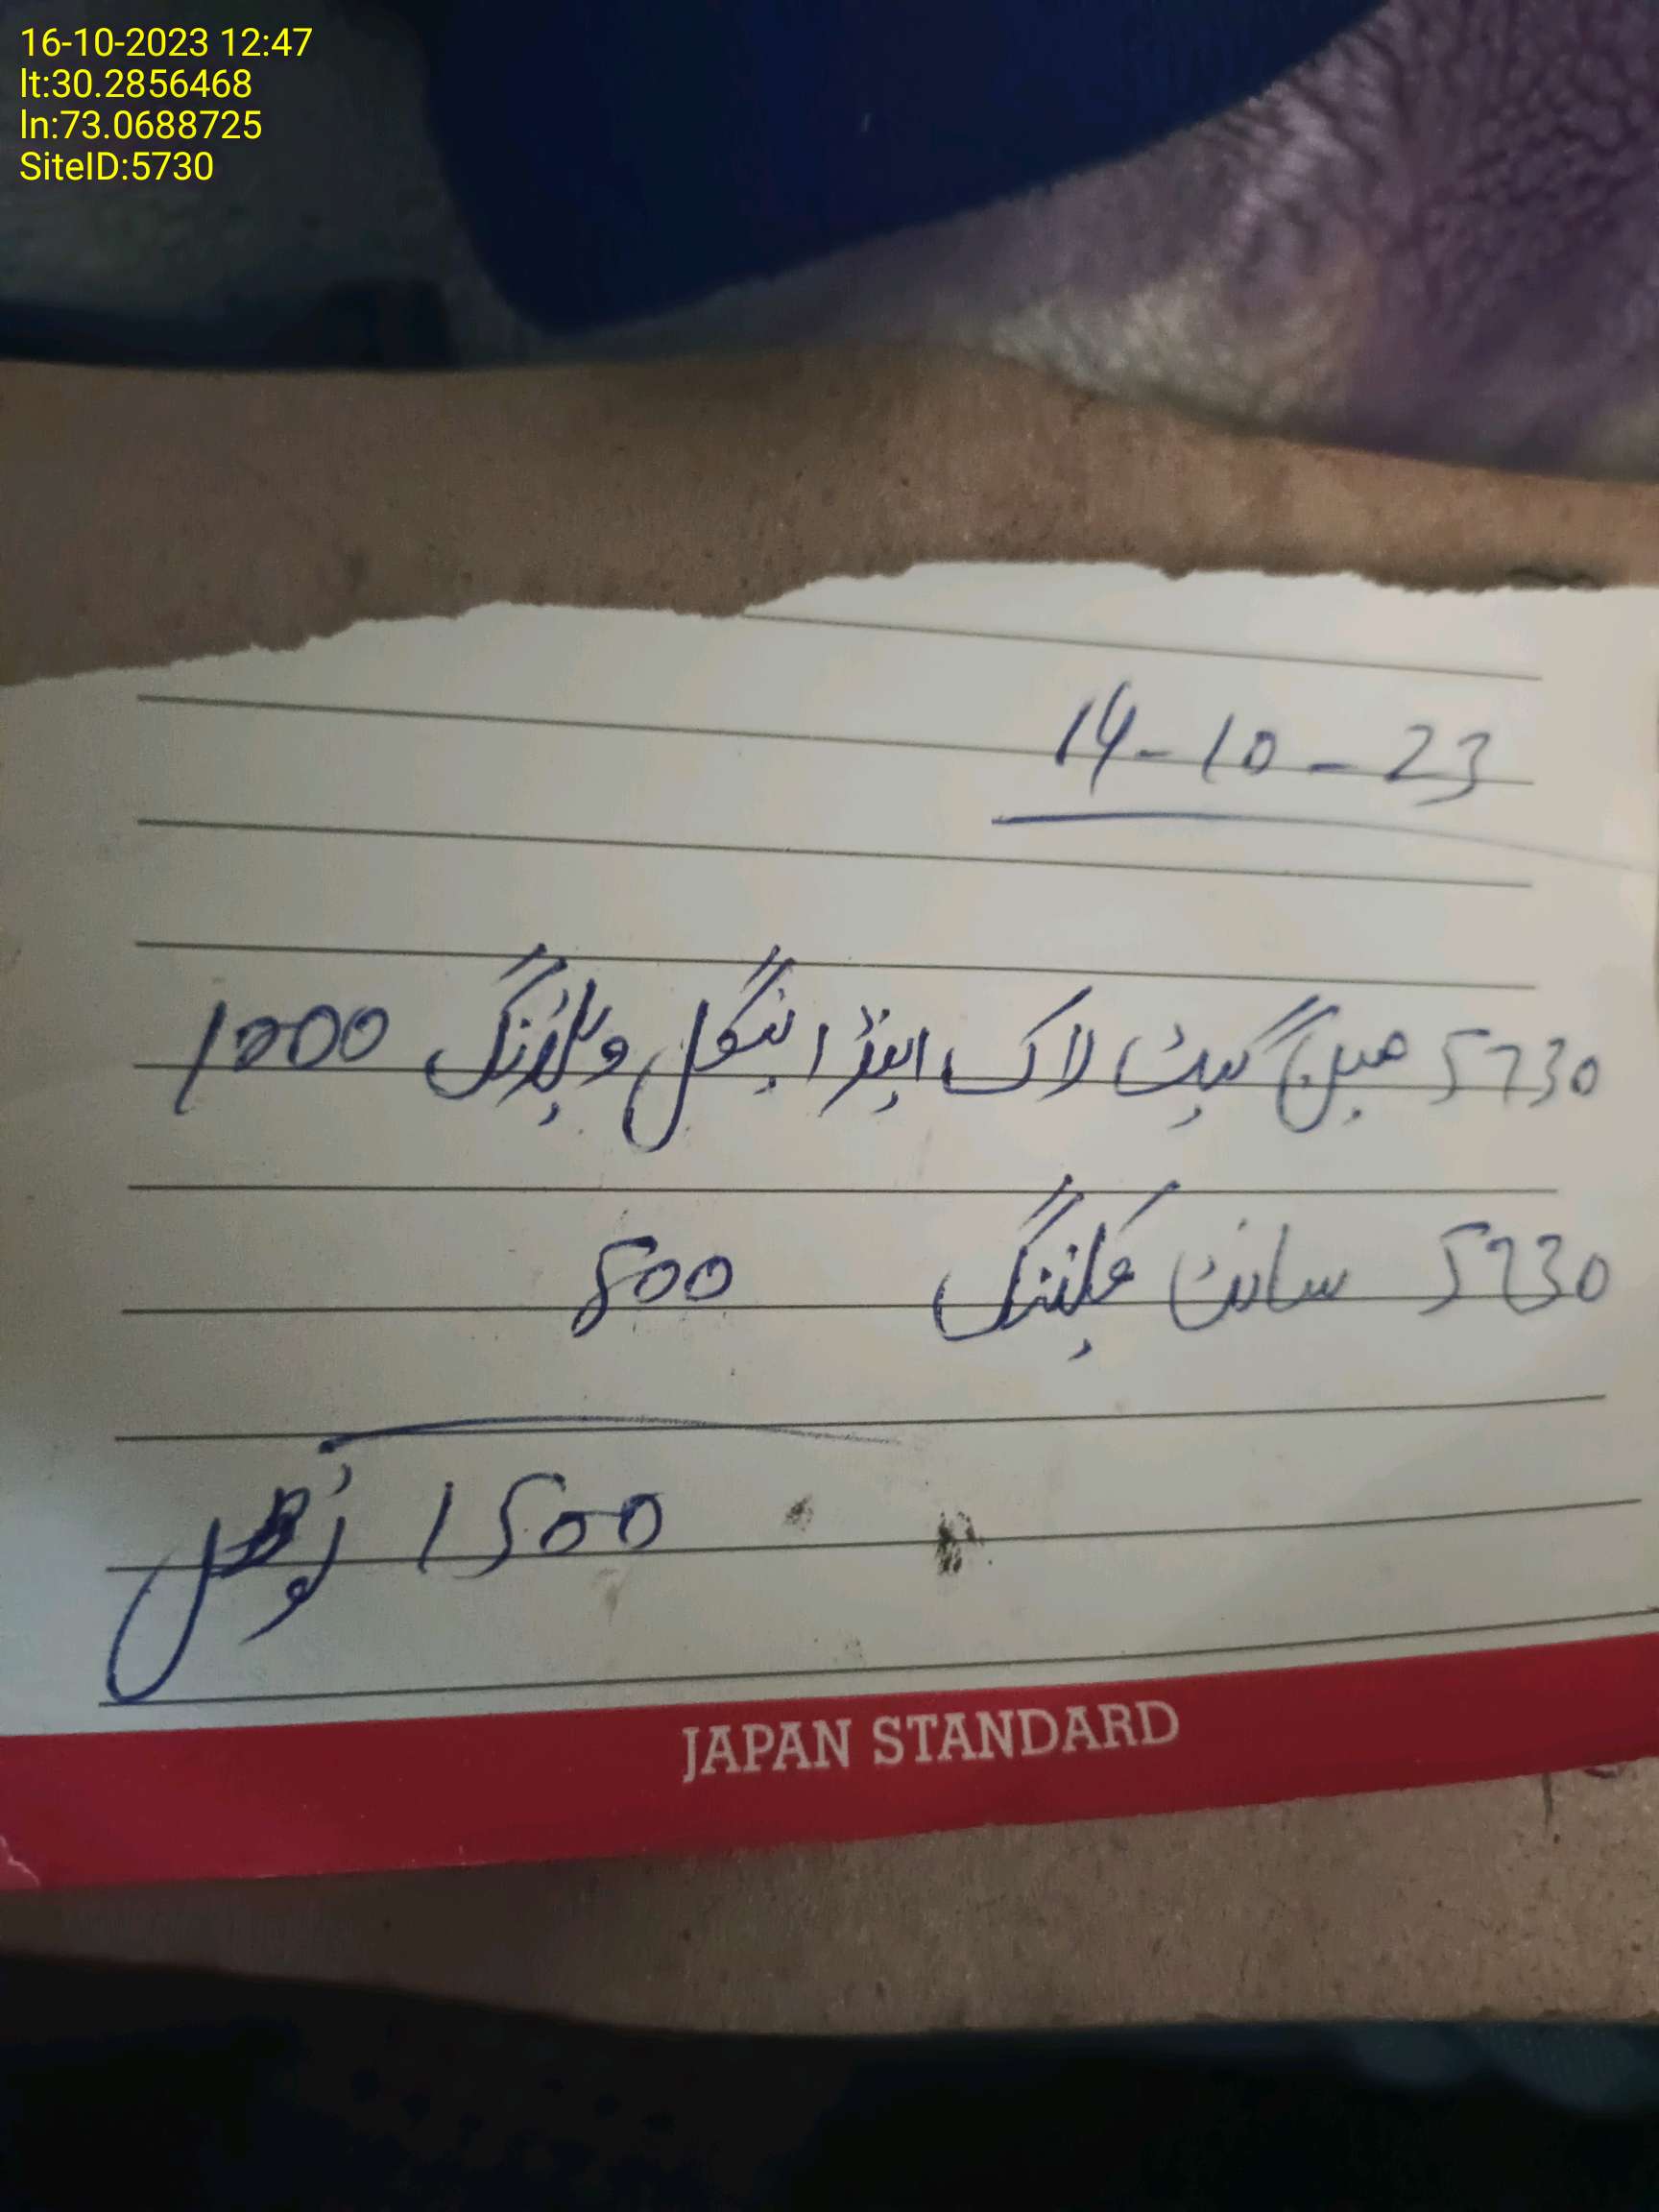 16-10-2023 12:47
lt:30.2856468
ln:73.0688725
SiteID:5730
14-10-23
5730 مین گیٹ لاک اینڈ اینگل ویلڈنگ 1000
5730 سائٹ کلیننگ 500
1500 ٹوٹل
JAPAN STANDARD